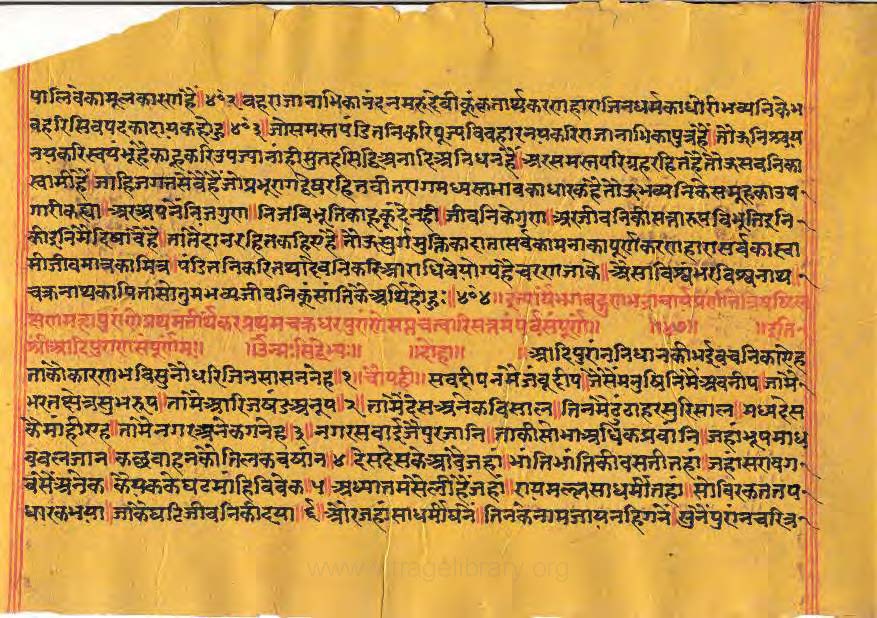 पालिवेकामूलकारणहैं॥४०२॥वहराजानाभिकानंदनमरुदेवीकूंकृतार्थकरणहाराजिनधर्मकाधोरीभव्यनिके
वहरिसिवपदकादायकहोहु॥४०३॥जोसमस्तपंडितनिकरिपूज्यविवहारनयकरिराजानाभिकापुत्रहैं॥तोऊनिश्चय
नयकरिस्वयंभूहैकाहूकरिउपज्यानांही॥अनादिअनिधनहैं॥अरसमस्तपरिग्रहरहितहैतोऊसवनिका
स्वामीहै॥जाहिजगतसेवेंहैंजोप्रभूरागद्वेषरहितवीतरागमध्यस्तभावकाधारकहैतोऊभव्यनिकेसमूहकाउप
गारीकह्या॥अरअपनेंनिजगुण॥निजविभूतिकाहूकूंदेनही॥जीवनिकेगुण॥अरजीवनिकीसत्तारूपविभूतिइनि
कीइनिमेंदिषावैहै॥तातैंदानरहितकहिएहै॥तोऊसुर्गमुक्तिकादातासर्वकामनाकापूर्णकरणहारासर्वकास्वा
मीजीवमात्रकामित्र॥पंडितनिकरितथादेवनिकरिआराधिवेयोग्यहैचरणजाके॥अैसाविश्वंभरविश्वनाथ
चक्रनाथकापितासोतुमभव्यजीवनिकूंसांतिकेअर्थिहोहुः॥४०४॥इत्यार्षेभगवद्गुणभद्राचार्यप्रणीतेत्रिषष्टिल
क्षणमहापुराणेप्रथमतीर्थंकरप्रथमचक्रधरपुराणेसप्तचत्वारिंसत्तमंपर्वसंपूर्णं॥ ॥४७॥ ॥इति
श्रीआदिपुराणसंपूर्णम्॥ ॥उंनमःसिद्धेभ्यः॥ ॥दोहा॥ ॥आदिपुरांननिधानकीभईवचनिकाएह
ताकौकारणभविसुनौधरिजिनसासननेह॥१॥चौपही॥सवदीपनमेंजंबूदीप॥जैसेंमनुषिनिमेंअवनीप॥जामें
भरतक्षेत्रसुभरूप॥तामैंआरिजषंडअनूप॥२॥तामैंदेसअनेकविसाल॥तिनमेंढुंढाहरसुरिसाल॥मध्यदेस
केमांहीएह॥तामेंनगरअनेकगनेह॥३॥नगरसवाईजैपुरजानि॥ताकीसोभाअधिकप्रवांनि॥जहांभूपमाध
वबलजान॥कछवाहनकौतिलकबषांन॥४॥देसदेसकेआवेजहां॥भांतिभांतिकीवसतीतहां॥जहांसरावग
वसेंअनेक॥केयककेघटमांहिविवेक॥५॥अध्यातमसैलीहैजहां॥रायमल्लसाधर्मीतहां॥सोविरकततप
धारकभया॥जांकेघटिजीवनिकीदया॥६॥औरजहांसाधर्मीघनें॥तिनकेनामजायनहिगनें॥सुनेंपुरांनचरित्र